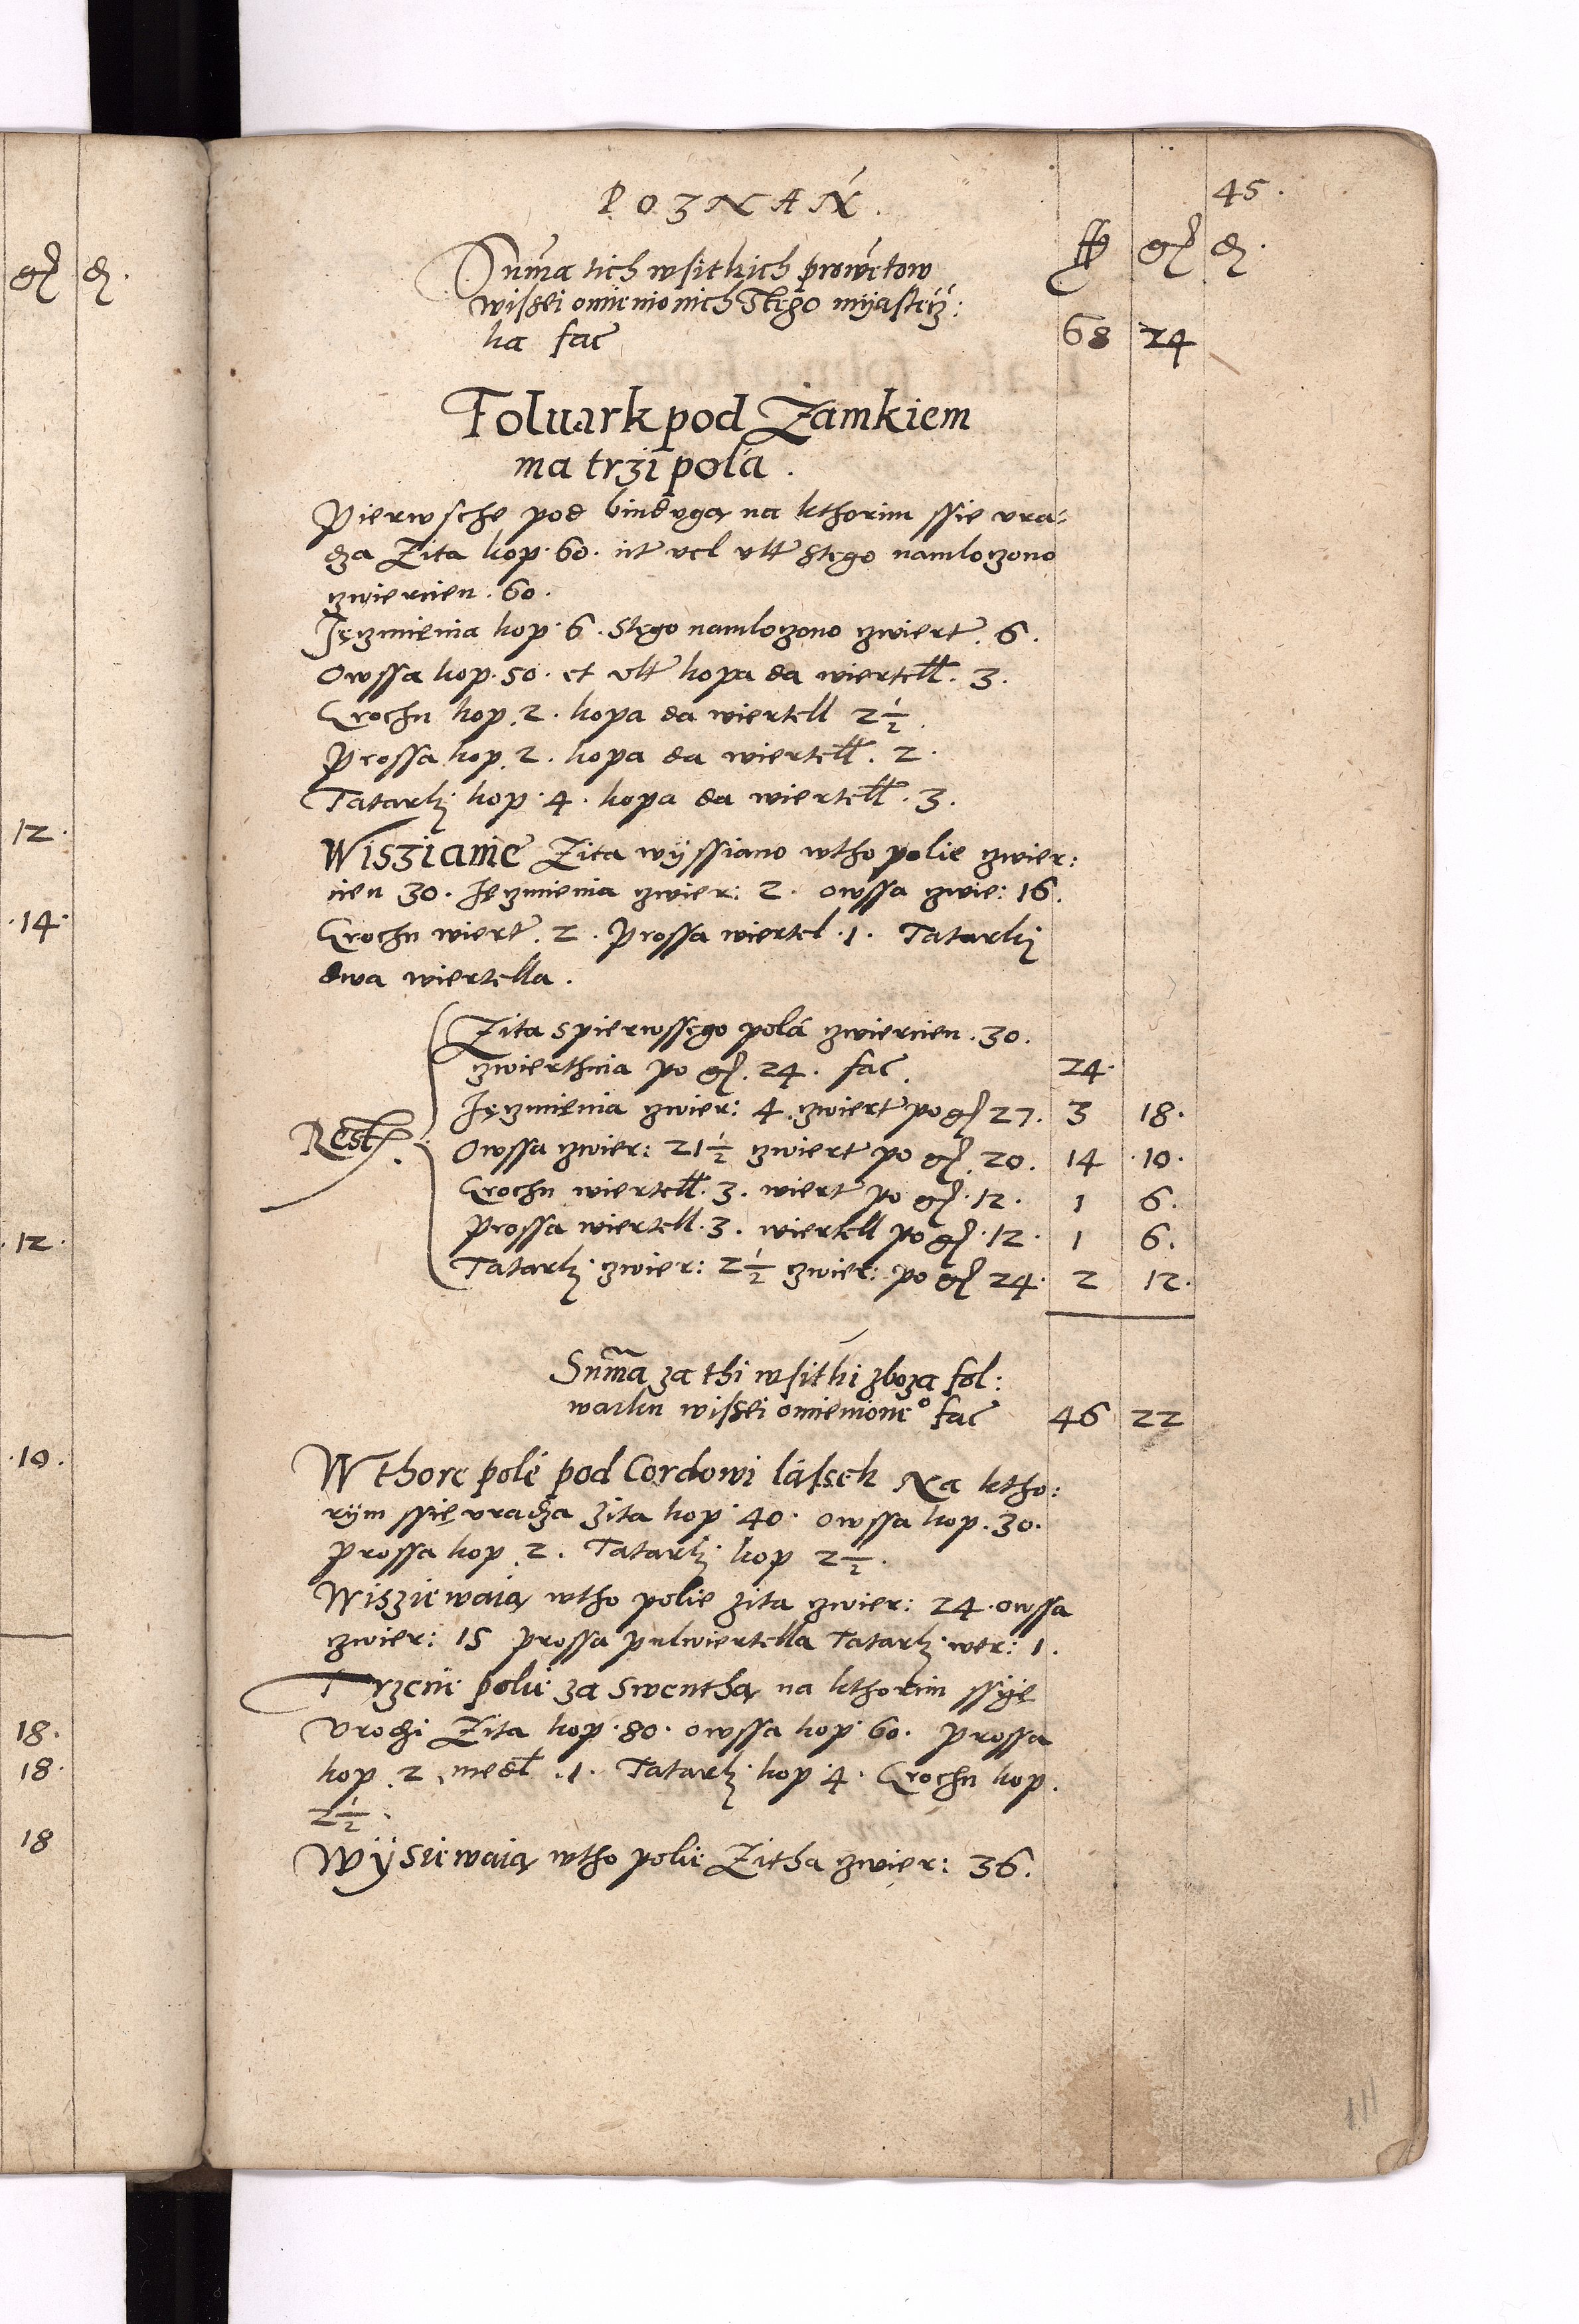 POZNAŃ.
45.
fl gr d.
Suma tich wsitkich prowetow
wissei omienionich Tego myastecz:
ka fac 68 24
Foluark pod Zamkiem
ma trzi polá.
Pierwsche pod bindugą na kthorim ssie vra-
dza Zita kop. 60. it vel vlt Stego namloczono
czwiercien. 60.
Jęczmienia kop. 6. Stego namloczono czwiert. 6.
Owssa kop. 50. et vlt kopa da wiertell. 3.
Grochu kop. 2. kopa da wiertell 2 1/2.
Prossa kop. 2. kopa da wiertell. 2.
Tatarki kop. 4. kopa da wiertell. 3.
Wisziamie Zita wyssiano wtho polie czwier:
cien 30. Jęczmienia czwier: 2. owssa czwie: 16.
Grochu wiert. 2. Prossa wiertel. 1. Tatarki
dwa wiertella.
Rest.
Zita spierwssego polá czwiercien. 30.
czwierthnia po gr. 24. fac. 24.
Jęczmienia czwier: 4 czwiert po gr 27. 3 18.
Owssa czwier: 21 1/2 czwiert po gr. 20. 14 10.
Grochu wiertell. 3. wiert po gr. 12. 1 6.
Prossa wiertell. 3. wiertell po gr. 12. 1 6.
Tatarki czwier: 2 1/2 czwier: po gr 24. 2 12.
Suma za thi wsitki zboza fol:
warku wissei omienione° fac 46 22
Wthore polé pod Cordowi lássek Na ktho:
rym ssię vradza zita kop. 40. owssa kop. 30.
Prossa kop. 2. Tatarki kop 2 1/2.
Wisziewaią wtho polie zita czwier: 24. owssa
czwier: 15 prossa pulwiertella Tatarki wer: 1.
Trzecie polie za Swenthą na kthorim ssyę
vrodzi Zita kop. 80. owssa kop. 60. Prossa
kop. 2. medl. 1. Tatarki kop. 4. Grochu kop.
2 1/2.
Wÿsiewaią wtho polie Zitha czwier: 36.
111
gr d.
12.
14.
12.
10.
18.
18.
18